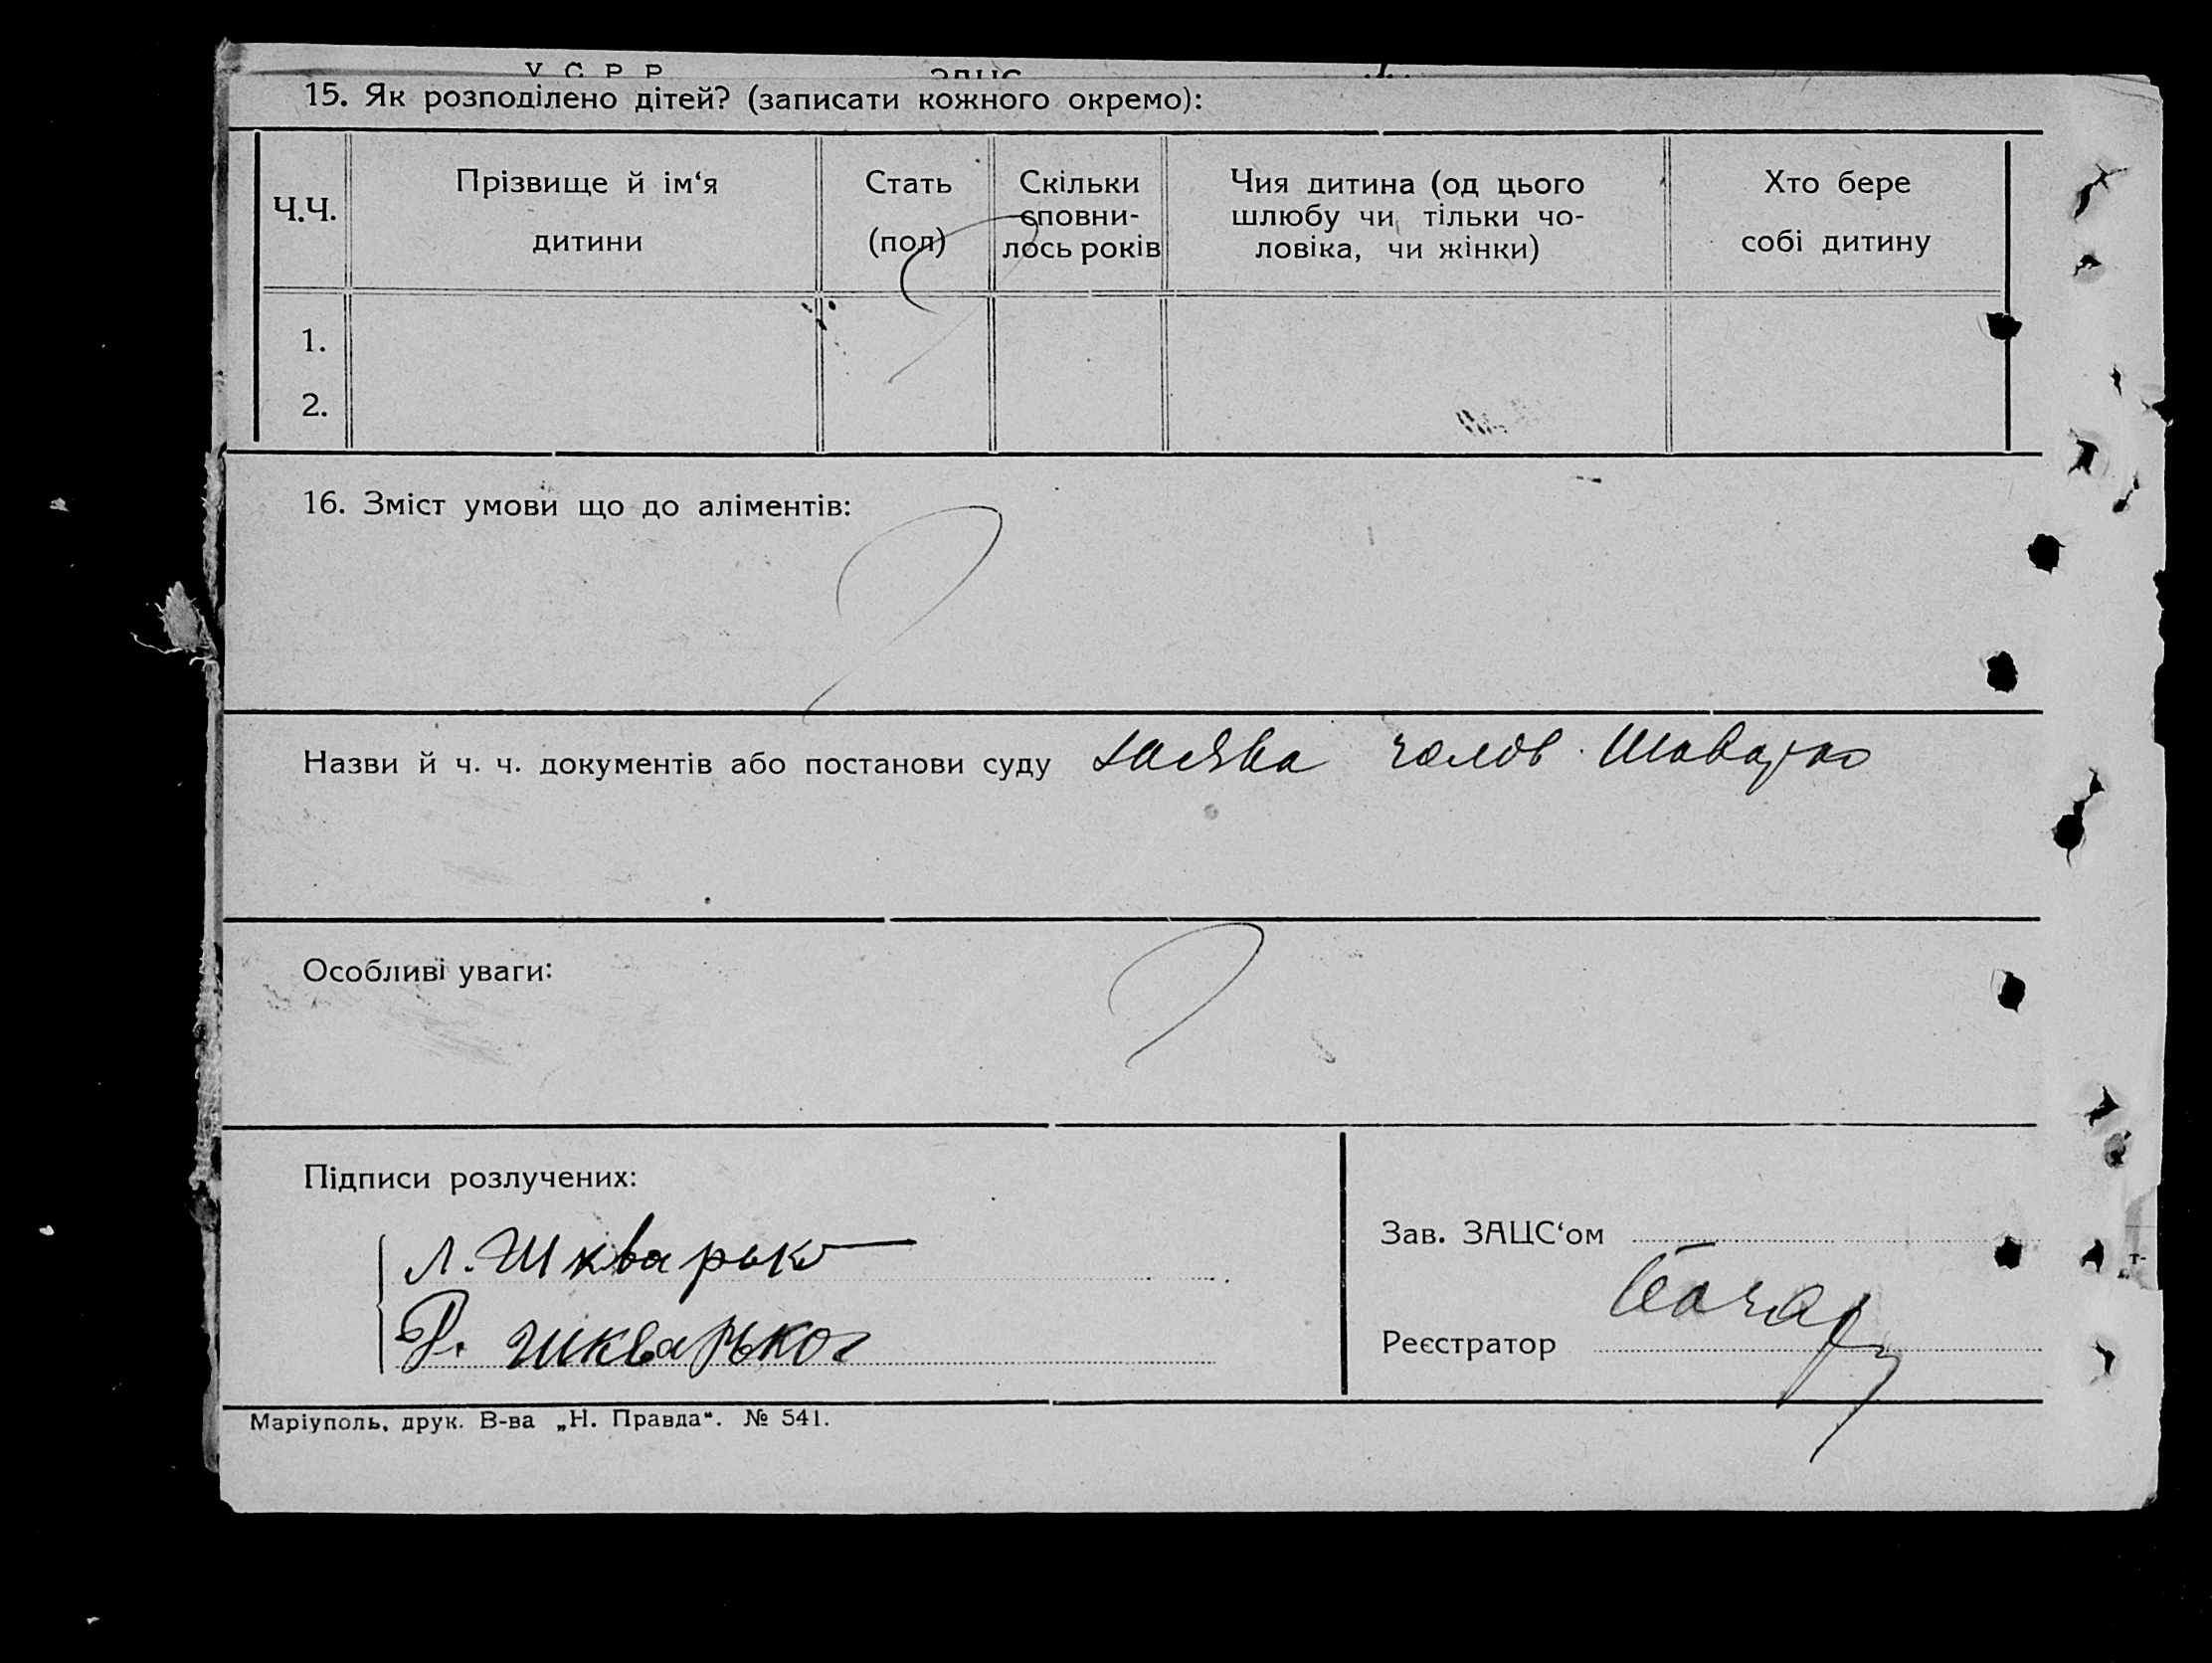 У.С.Р.Р. ЗАЦС
15. Як розподілено дітей? (записати кожного окремо):
Ч.Ч. Прізвище й ім‘я дитини Стать (пол) Скільки сповнилось років Чия дитина (од цього шлюбу чи тільки чоловіка, чи жінки) Хто бере собі дитину
1.
2.
16. Зміст умови що до аліментів:
Назви й ч. ч. документів або постанови суду заява чолов.
Особливі уваги:
Підписи розлучених:
Л. Шкварько
Р. Шкварько
Зав. ЗАЦС‘ом
Реєстратор
Маріуполь, друк. В-ва „Н. Правда“. № 541.